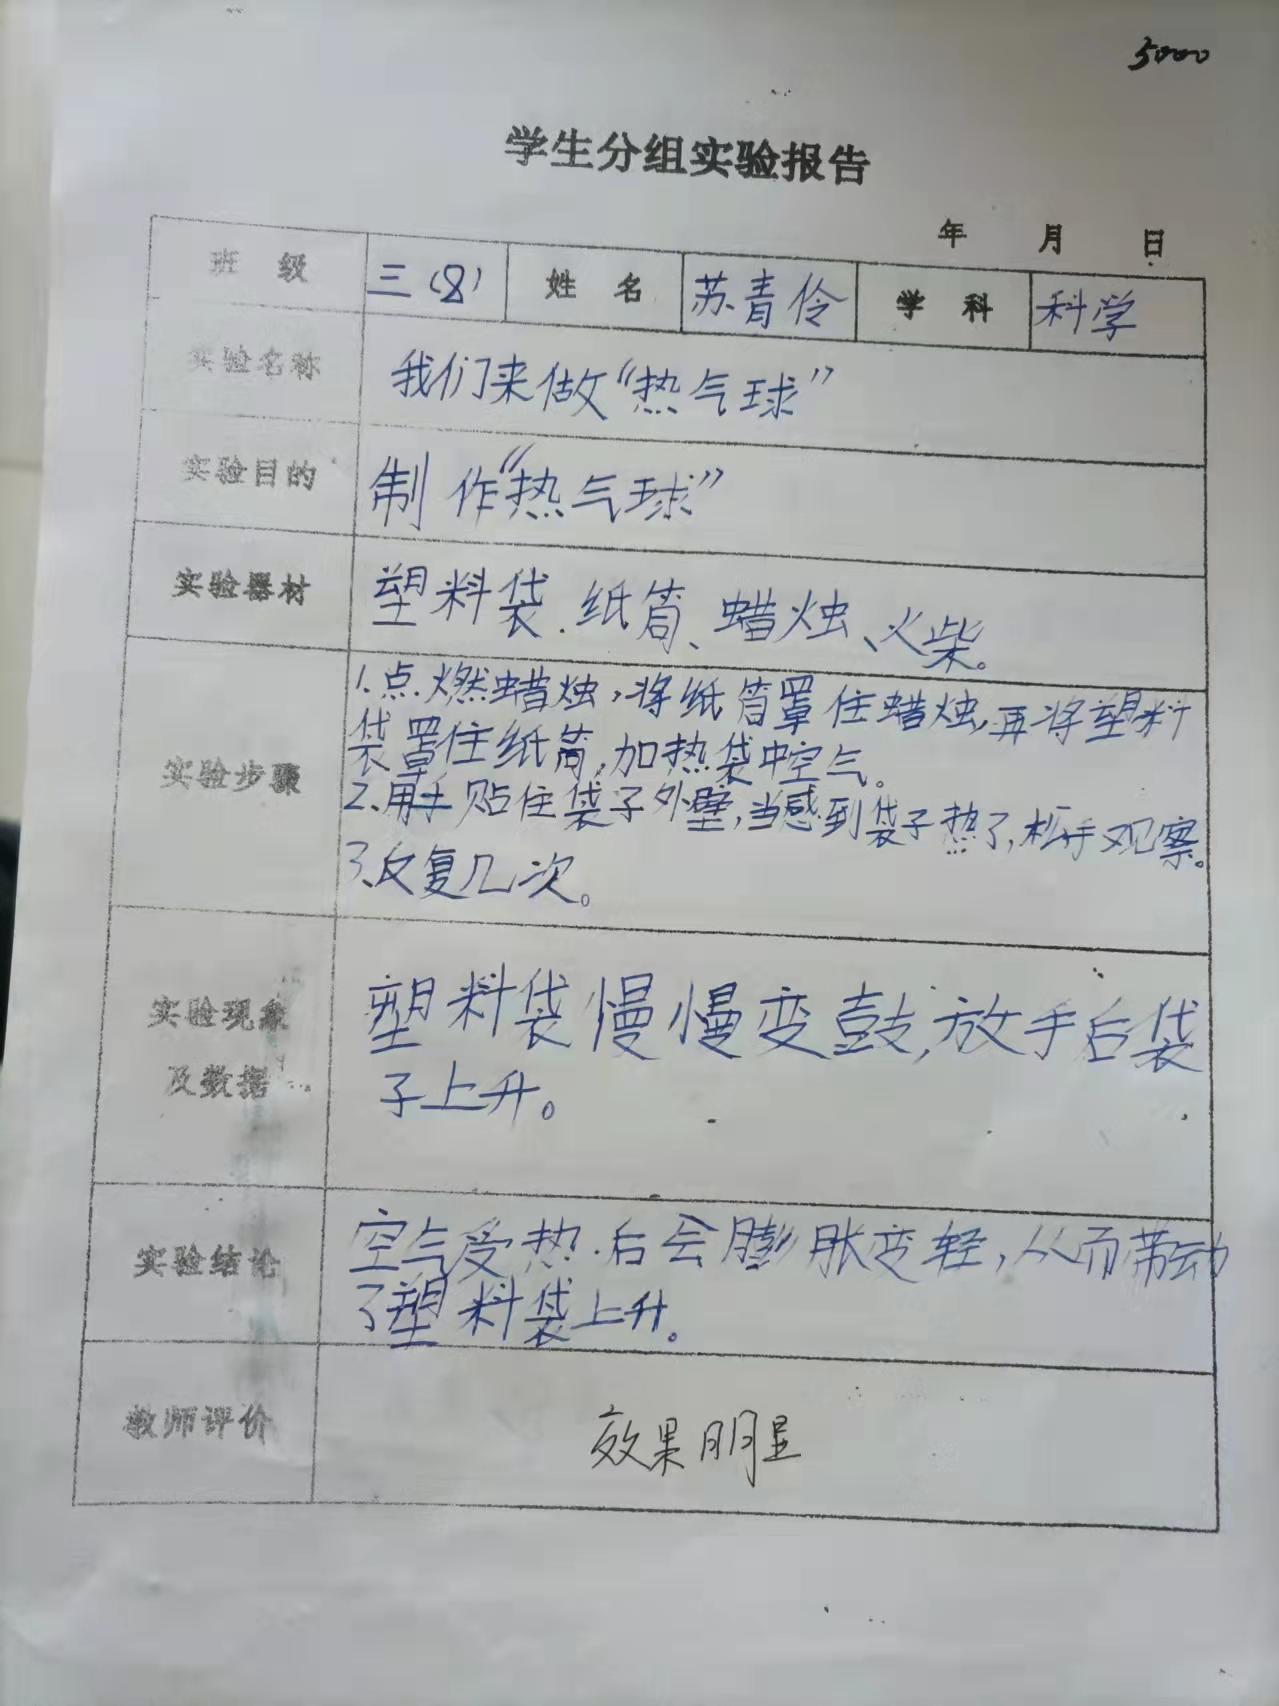 5000
学生分组实验报告
年 月 日
班 级 三(8) 姓 名 苏青伶 学 科 科学
实验名称 我们来做“热气球”
实验目的 制作“热气球”
实验器材 塑料袋、纸筒、蜡烛、火柴。
实验步骤
1.点燃蜡烛,将纸筒罩住蜡烛,再将塑料
袋罩住纸筒,加热袋中空气。
2.用手贴住袋子外壁,当感到袋子热了,松手观察。
3.反复几次。
实验现象
及数据
塑料袋慢慢变鼓,放手后袋
子上升。
实验结论
空气受热后会膨胀变轻,从而带动
了塑料袋上升。
教师评价 效果明显